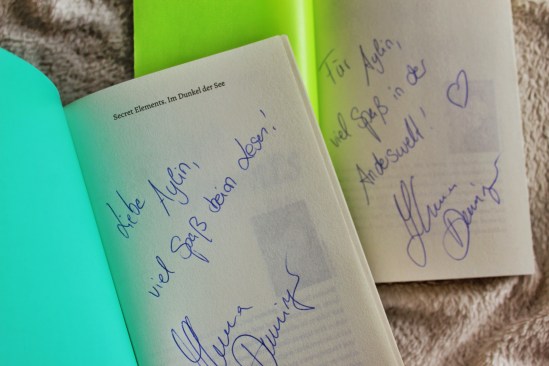 Secret Elements. Im Dunkel der See
Liebe Aylin,
viel Spaß beim Lesen!
Für Aylin,
viel Spaß in der
Anderswelt!